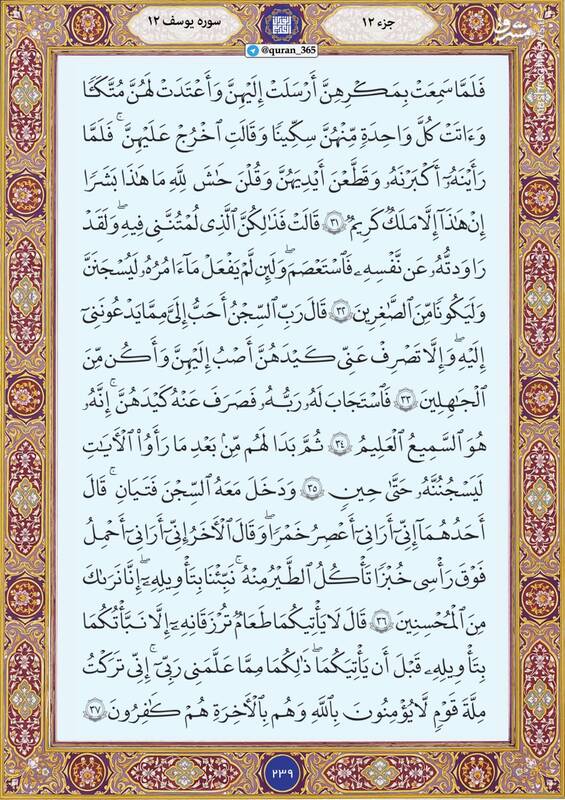 جزء ۱۲
سوره یوسف ۱۲
@quran_365
فَلَمَّا سَمِعَتْ بِمَكْرِهِنَّ أَرْسَلَتْ إِلَيْهِنَّ وَأَعْتَدَتْ لَهُنَّ مُتَّكَـًٔا
وَءَاتَتْ كُلَّ وَٰحِدَةٍ مِّنْهُنَّ سِكِّينًا وَقَالَتِ ٱخْرُجْ عَلَيْهِنَّ ۖ فَلَمَّا
رَأَيْنَهُۥٓ أَكْبَرْنَهُۥ وَقَطَّعْنَ أَيْدِيَهُنَّ وَقُلْنَ حَٰشَ لِلَّهِ مَا هَٰذَا بَشَرًا
إِنْ هَٰذَآ إِلَّا مَلَكٌ كَرِيمٌ ۳۱ قَالَتْ فَذَٰلِكُنَّ ٱلَّذِى لُمْتُنَّنِى فِيهِ ۖ وَلَقَدْ
رَٰوَدتُّهُۥ عَن نَّفْسِهِۦ فَٱسْتَعْصَمَ ۖ وَلَئِن لَّمْ يَفْعَلْ مَآ ءَامُرُهُۥ لَيُسْجَنَنَّ
وَلَيَكُونًا مِّنَ ٱلصَّٰغِرِينَ ۳۲ قَالَ رَبِّ ٱلسِّجْنُ أَحَبُّ إِلَىَّ مِمَّا يَدْعُونَنِىٓ
إِلَيْهِ ۖ وَإِلَّا تَصْرِفْ عَنِّى كَيْدَهُنَّ أَصْبُ إِلَيْهِنَّ وَأَكُن مِّنَ
ٱلْجَٰهِلِينَ ۳۳ فَٱسْتَجَابَ لَهُۥ رَبُّهُۥ فَصَرَفَ عَنْهُ كَيْدَهُنَّ ۚ إِنَّهُۥ
هُوَ ٱلسَّمِيعُ ٱلْعَلِيمُ ۳۴ ثُمَّ بَدَا لَهُم مِّنۢ بَعْدِ مَا رَأَوُا۟ ٱلْءَايَٰتِ
لَيَسْجُنُنَّهُۥ حَتَّىٰ حِينٍ ۳۵ وَدَخَلَ مَعَهُ ٱلسِّجْنَ فَتَيَانِ ۖ قَالَ
أَحَدُهُمَآ إِنِّىٓ أَرَىٰنِىٓ أَعْصِرُ خَمْرًا ۖ وَقَالَ ٱلْءَاخَرُ إِنِّىٓ أَرَىٰنِىٓ أَحْمِلُ
فَوْقَ رَأْسِى خُبْزًا تَأْكُلُ ٱلطَّيْرُ مِنْهُ ۖ نَبِّئْنَا بِتَأْوِيلِهِۦٓ ۖ إِنَّا نَرَىٰكَ
مِنَ ٱلْمُحْسِنِينَ ۳۶ قَالَ لَا يَأْتِيكُمَا طَعَامٌ تُرْزَقَانِهِۦٓ إِلَّا نَبَّأْتُكُمَا
بِتَأْوِيلِهِۦ قَبْلَ أَن يَأْتِيَكُمَا ۚ ذَٰلِكُمَا مِمَّا عَلَّمَنِى رَبِّىٓ ۚ إِنِّى تَرَكْتُ
مِلَّةَ قَوْمٍ لَّا يُؤْمِنُونَ بِٱللَّهِ وَهُم بِٱلْءَاخِرَةِ هُمْ كَٰفِرُونَ ۳۷
۲۳۹